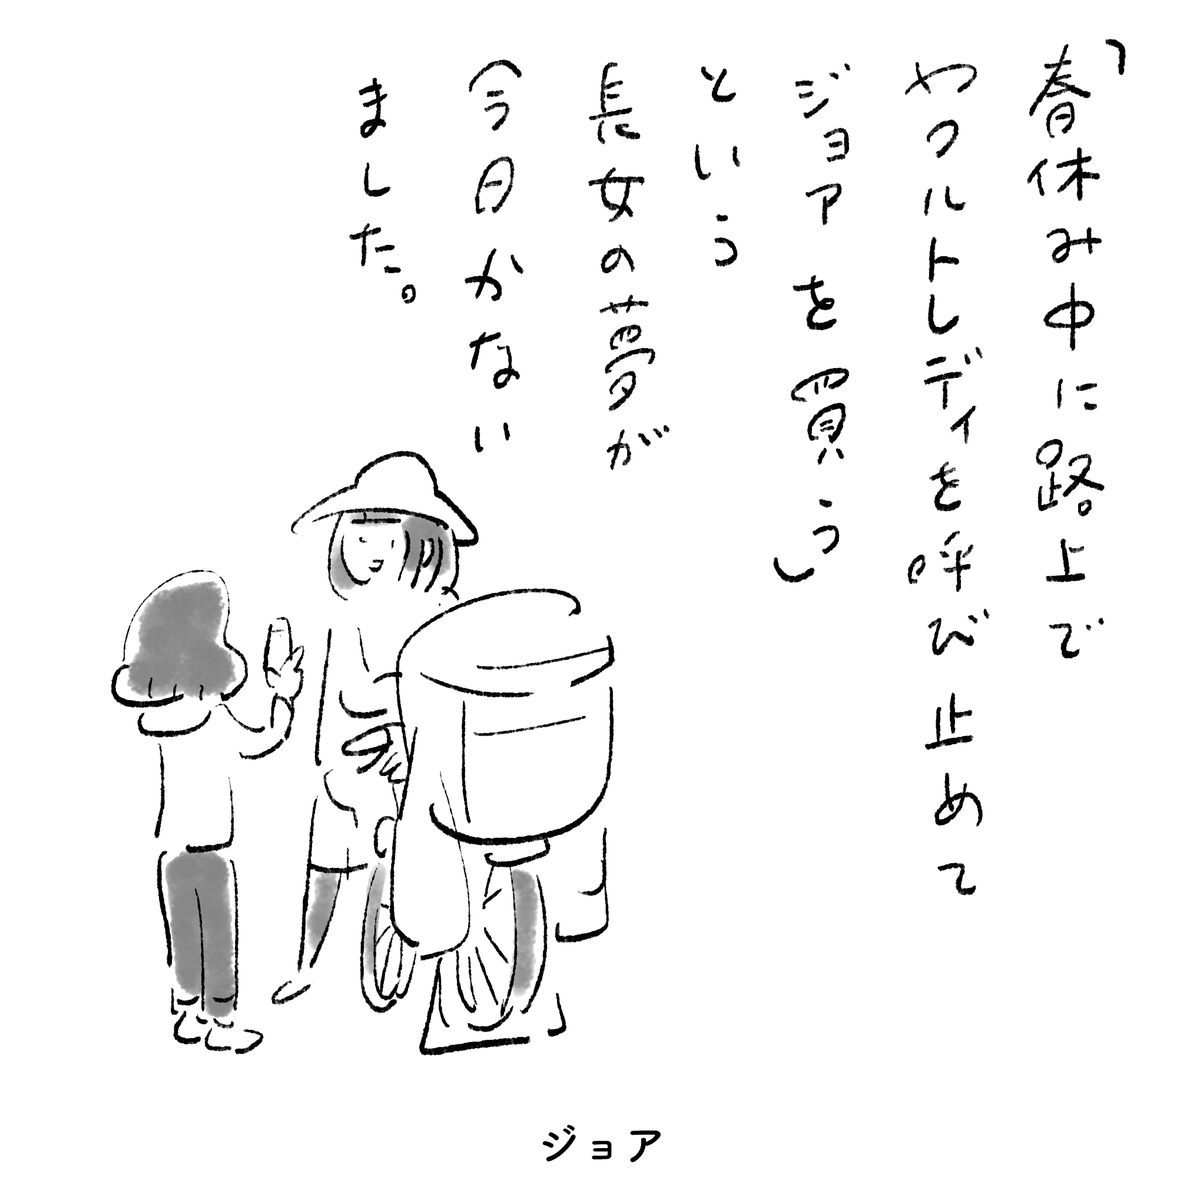 「春休み中に路上で
ヤクルトレディを呼び止めて
ジョアを買う」
という
長女の夢が
今日かない
ました。
ジョア